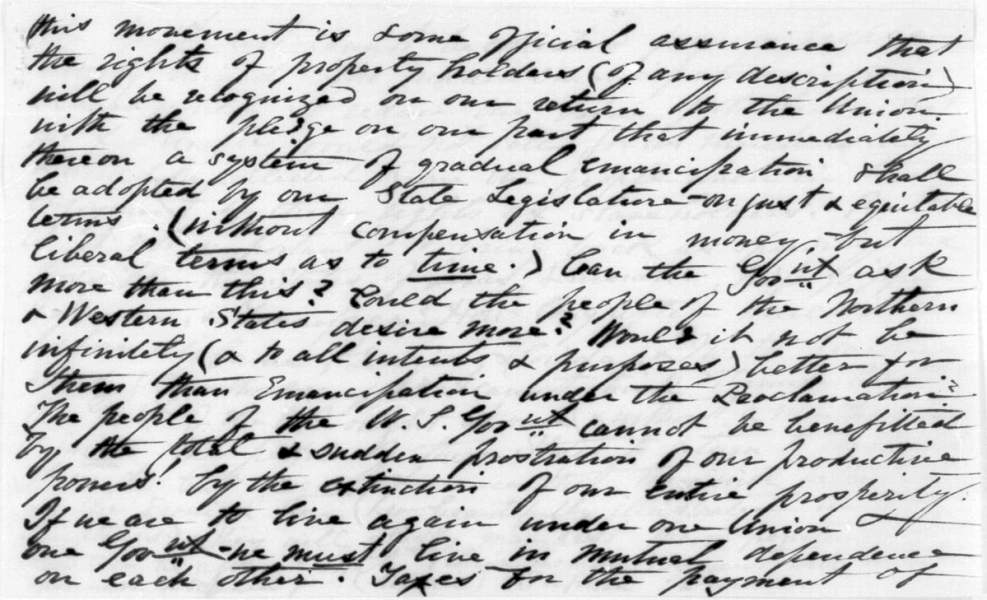 this movement is some official assurance that
the rights of property holders (of any description)
will be recognized on our return to the Union
with the pledge on our part that immediately
thereon a system of gradual emancipation shall
be adopted by our State Legislature - on just & equitable
terms. (without compensation in money, - but
liberal terms as to time.) Can the Gov'nt ask
more than this? Could the people of the Northern
& Western States desire more? Would it not be
infinitely (& to all intents & purposes) better for
them than Emancipation under the Proclamation?
The people of the U.S. Gov'nt cannot be benefitted
by the total & sudden prostration of our productive
powers! by the extinction of our entire prosperity.
If we are to live again under one Union &
one Gov'nt - we must live in mutual dependence
on each other. Taxes for the payment of